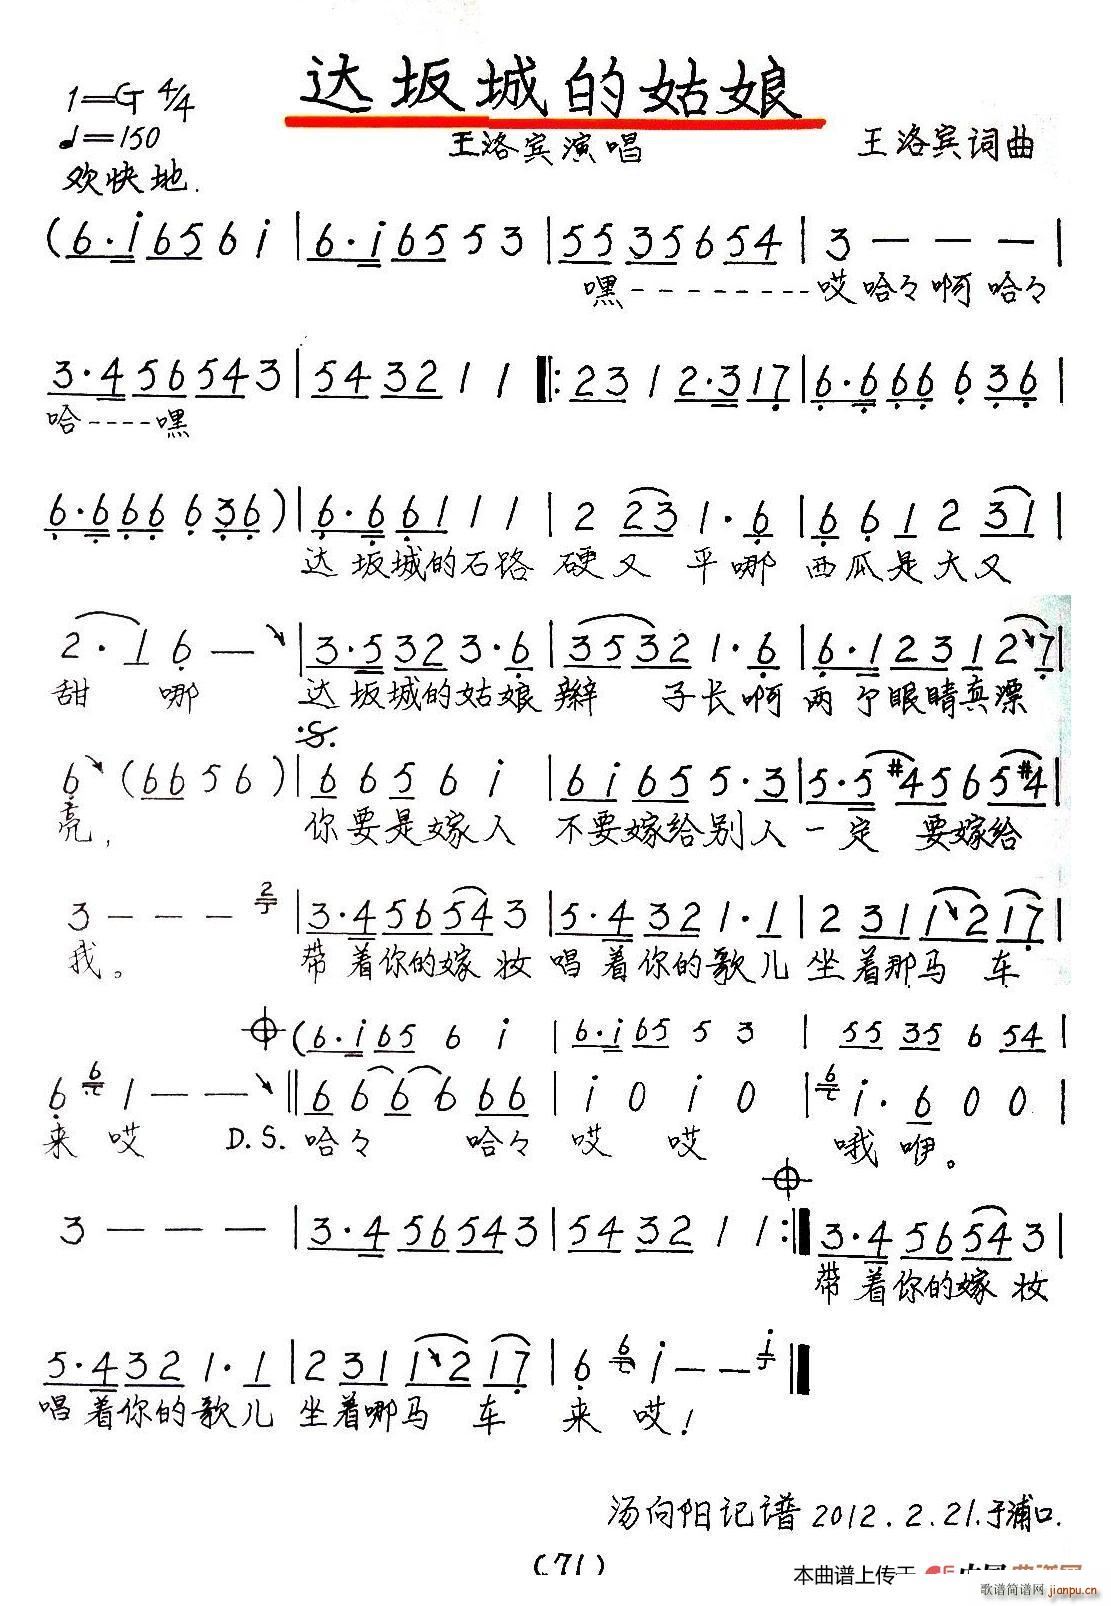 达坂城的姑娘
1=G 4/4
♩=150
欢快地.
王洛宾演唱
王洛宾词曲
(6·i656i|6·i6553|5535654|3———|
嘿---------哎哈々啊哈々
3·456543|543211‖:2312·317|6·666636|
哈----嘿
6·666636)|6·66111|2231·6|661231|
达坂城的石路硬又平哪西瓜是大又
2·16—|3·5323·6|35321·6|6·123127|
甜哪达坂城的姑娘辫子长啊两个眼睛真漂
·S.
6(6656)|6656i|6i655·3|5·5#4565#4|
亮,你要是嫁人不要嫁给别人一定要嫁给
3———|3·456543|5·4321·1|2311217|
我。带着你的嫁妆唱着你的歌儿坐着那马车
(6·i656i|6·i6553|5535654|
61——‖6666666|i0i0|i·600|
来哎D.S.哈々哈々哎哎哦咿。
3———|3·456543|543211:‖3·456543|
带着你的嫁妆
5·4321·1|2311217|6i——‖
唱着你的歌儿坐着哪马车来哎!
汤向阳记谱2012.2.21.于浦口.
(71)
本曲谱上传于
歌谱简谱网 jianpu.cn